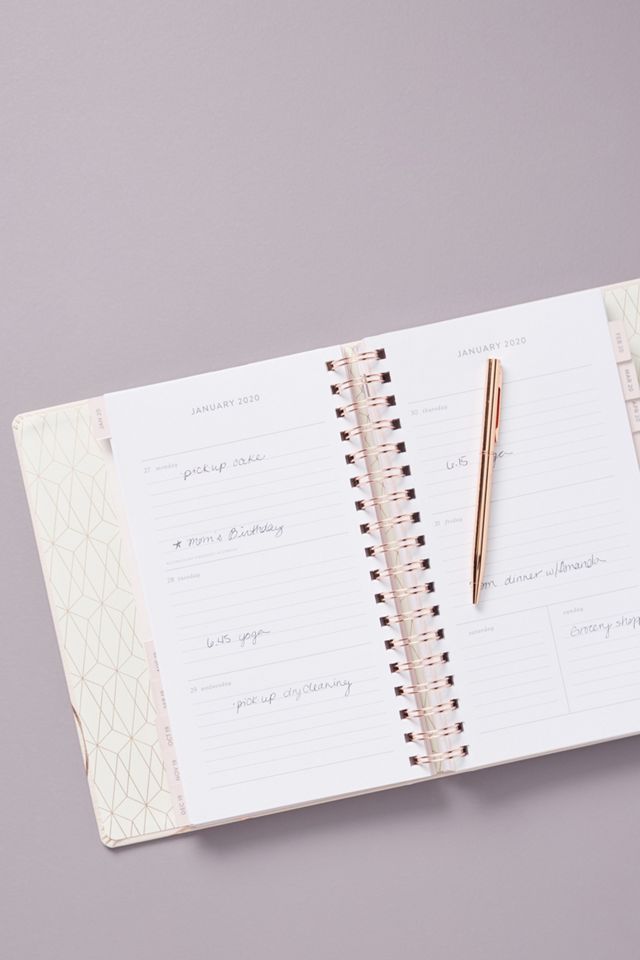 JAN 20
JANUARY 2020
27 monday
pick up cake
★ mom's Birthday
28 tuesday
6:45 yoga
29 wednesday
pick up drycleaning
OCT 19
NOV 19
DEC 19
JANUARY 2020
30 thursday
6:15
31 friday
dinner w/Amanda
saturday
sunday
Grocery shopp
FEB 20
MAR 20